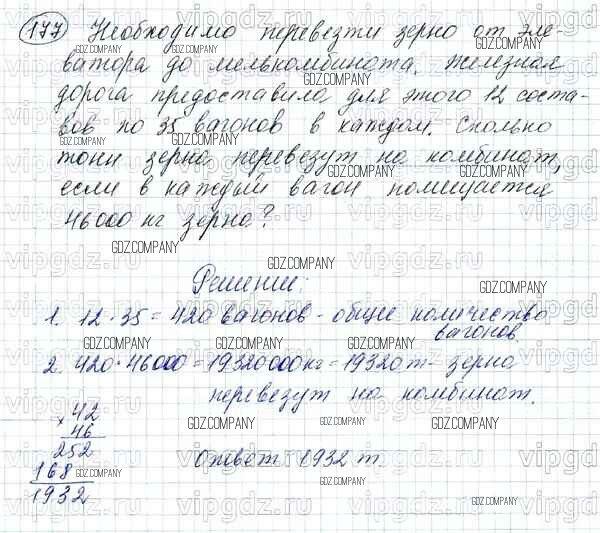 177 Необходимо перевезти зерно от эле-
ватора до мелькомбината. Железная
дорога предоставила для этого 12 соста-
вов по 35 вагонов в каждом. Сколько
тонн зерна перевезут на комбинат,
если в каждый вагон помещается
46000 кг зерна?
Решение:
1. 12 · 35 = 420 вагонов - общее количество
вагонов.
2. 420 · 46000 = 19320000 кг = 19320 т - зерна
перевезут на комбинат.
× 42
46
252
168
1932
Ответ 1932 т.
GDZ.COMPANY
vipgdz.ru